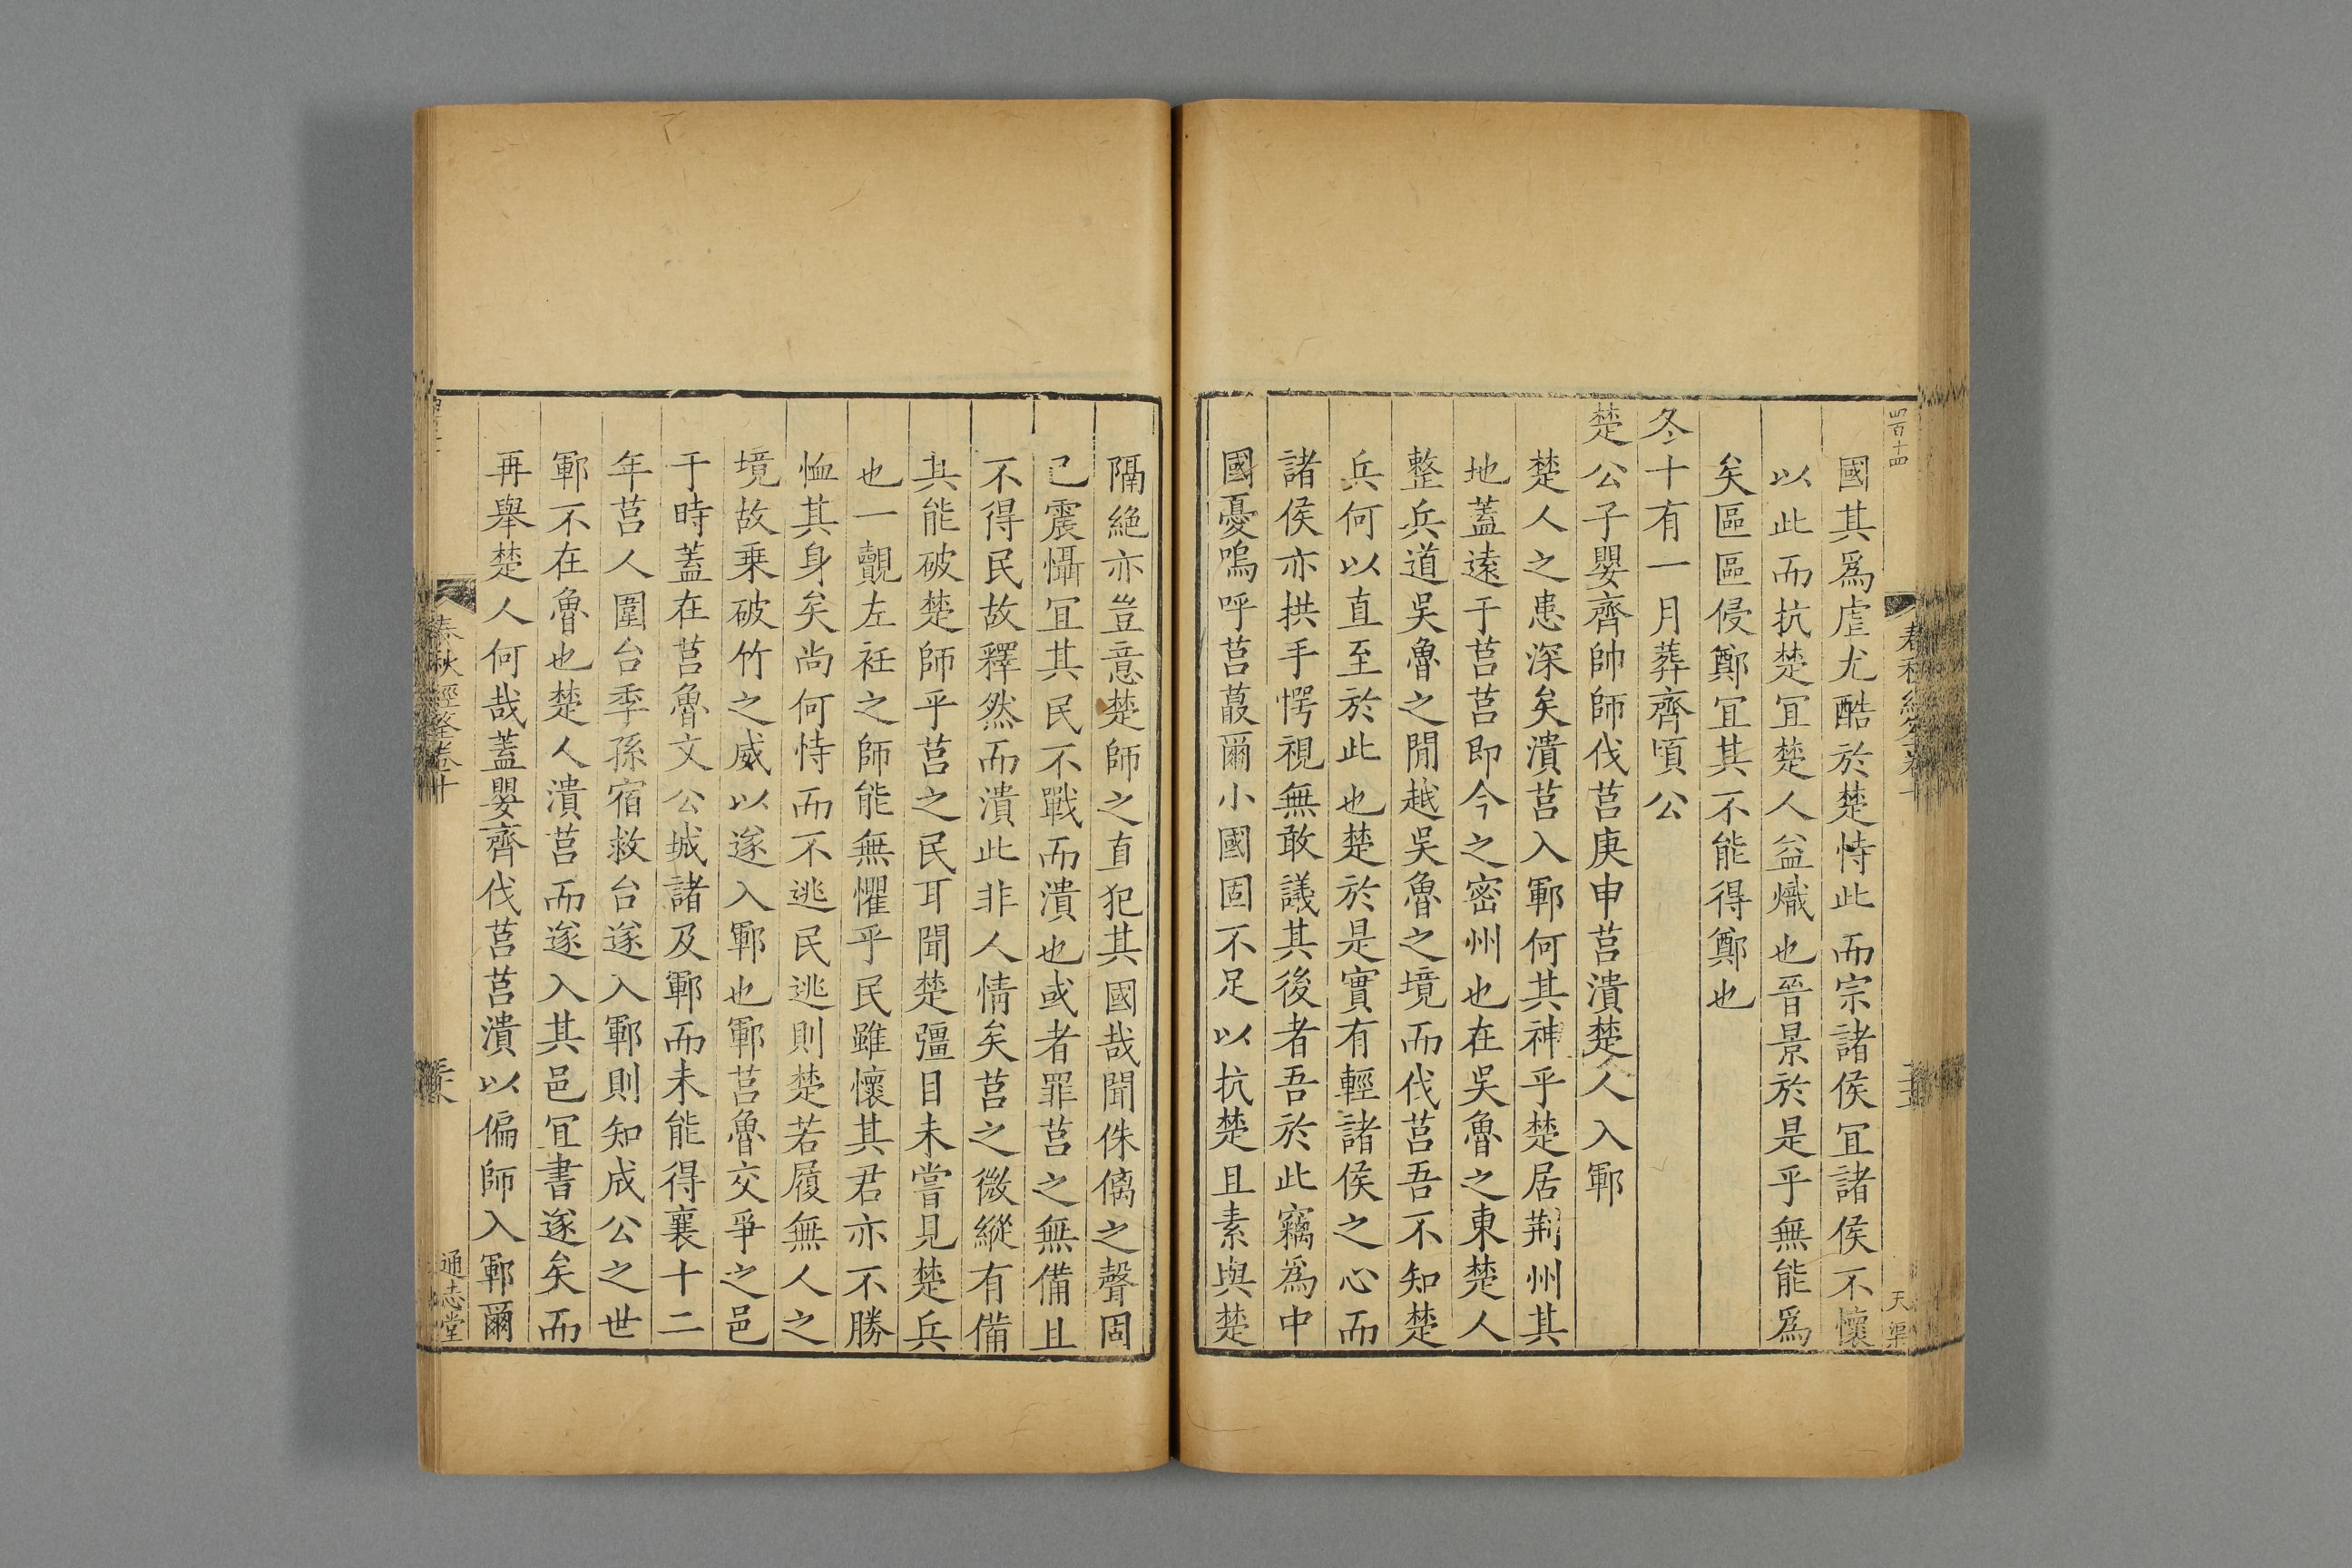 國其爲虐尤酷於楚恃此而宗諸侯冝諸侯不懷
以此而抗楚冝楚人益熾也晉景於是乎無能爲
矣區區侵鄭冝其不能得鄭也
冬十有一月葬齊頃公
楚公子嬰齊帥師伐莒庚申莒潰楚人入鄆
楚人之患深矣潰莒入鄆何其神乎楚居荆州其
地蓋遠于莒莒即今之密州也在吳魯之東楚人
整兵道吳魯之閒越吳魯之境而伐莒吾不知楚
兵何以直至於此也楚於是實有輕諸侯之心而
諸侯亦拱手愕視無敢議其後者吾於此竊爲中
國憂嗚呼莒蕞爾小國固不足以抗楚且素與楚
隔絶亦豈意楚師之直犯其國哉聞侏𠌯之聲固
已震懾冝其民不戰而潰也或者罪莒之無備且
不得民故釋然而潰此非人情矣莒之微縱有備
其能破楚師乎莒之民耳聞楚彊目未嘗見楚兵
也一覩左衽之師能無懼乎民雖懷其君亦不勝
恤其身矣尚何恃而不逃民逃則楚若履無人之
境故乗破竹之威以遂入鄆也鄆莒魯交爭之邑
于時蓋在莒魯文公城諸及鄆而未能得襄十二
年莒人圍台季孫宿救台遂入鄆則知成公之世
鄆不在魯也楚人潰莒而遂入其邑冝書遂矣而
再舉楚人何哉蓋嬰齊伐莒莒潰以偏師入鄆爾
春秋經筌卷十
通志堂